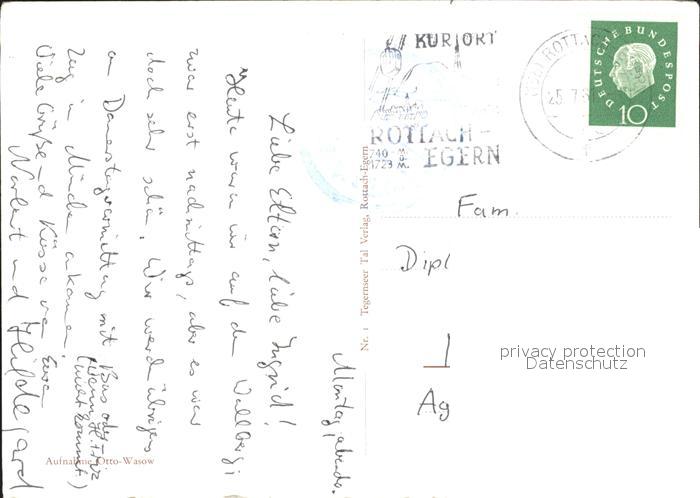 Montag, abends.
Liebe Eltern, liebe Ingrid!
Heute waren wir auf dem Wallberg,
zwar erst nachmittags, aber es war
doch sehr schön. Wir werden übrigens
am Donnerstagvormittag mit Bus oder
Zug in München ankommen.
(wenn H. Fritz
nicht kommt)
Viele Grüße und Küsse von Euren
Norbert und Hildegard
Aufnahme Otto-Wasow
Nr. 1 Tegernseer Tal Verlag, Rottach-Egern
KURORT
ROTTACH-
EGERN
740 m
1723 m
ROTTACH
25.7.
DEUTSCHE BUNDESPOST
10
Fam.
Dipl
Ag
privacy protection
Datenschutz